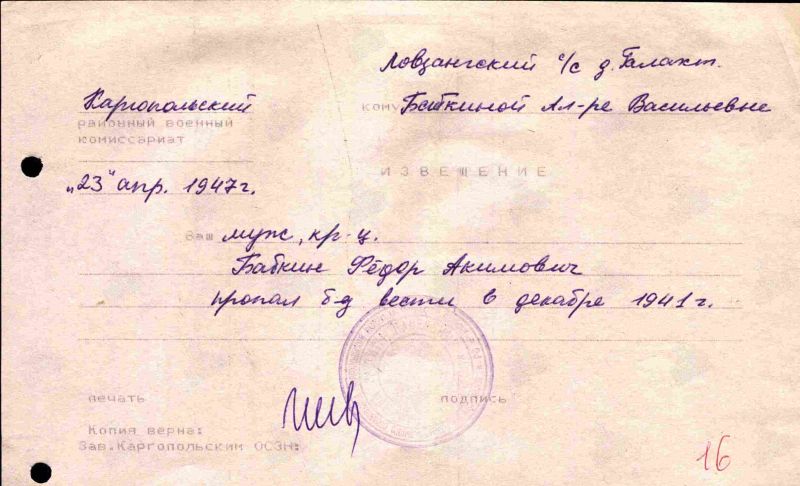 Ловзангский с/с д. Галахт.
Каргопольский
кому Бабкиной Ал-ре Васильевне
районный военный
комиссариат
ИЗВЕШЕНИЕ
„23“ апр. 1947г.
Ваш муж, кр-ц.
Бабкин Фёдор Акимович
пропал б-д вести в декабре 1941г.
печать
подпись
Копия верна:
Зав.Каргопольским ОСЗН:
16